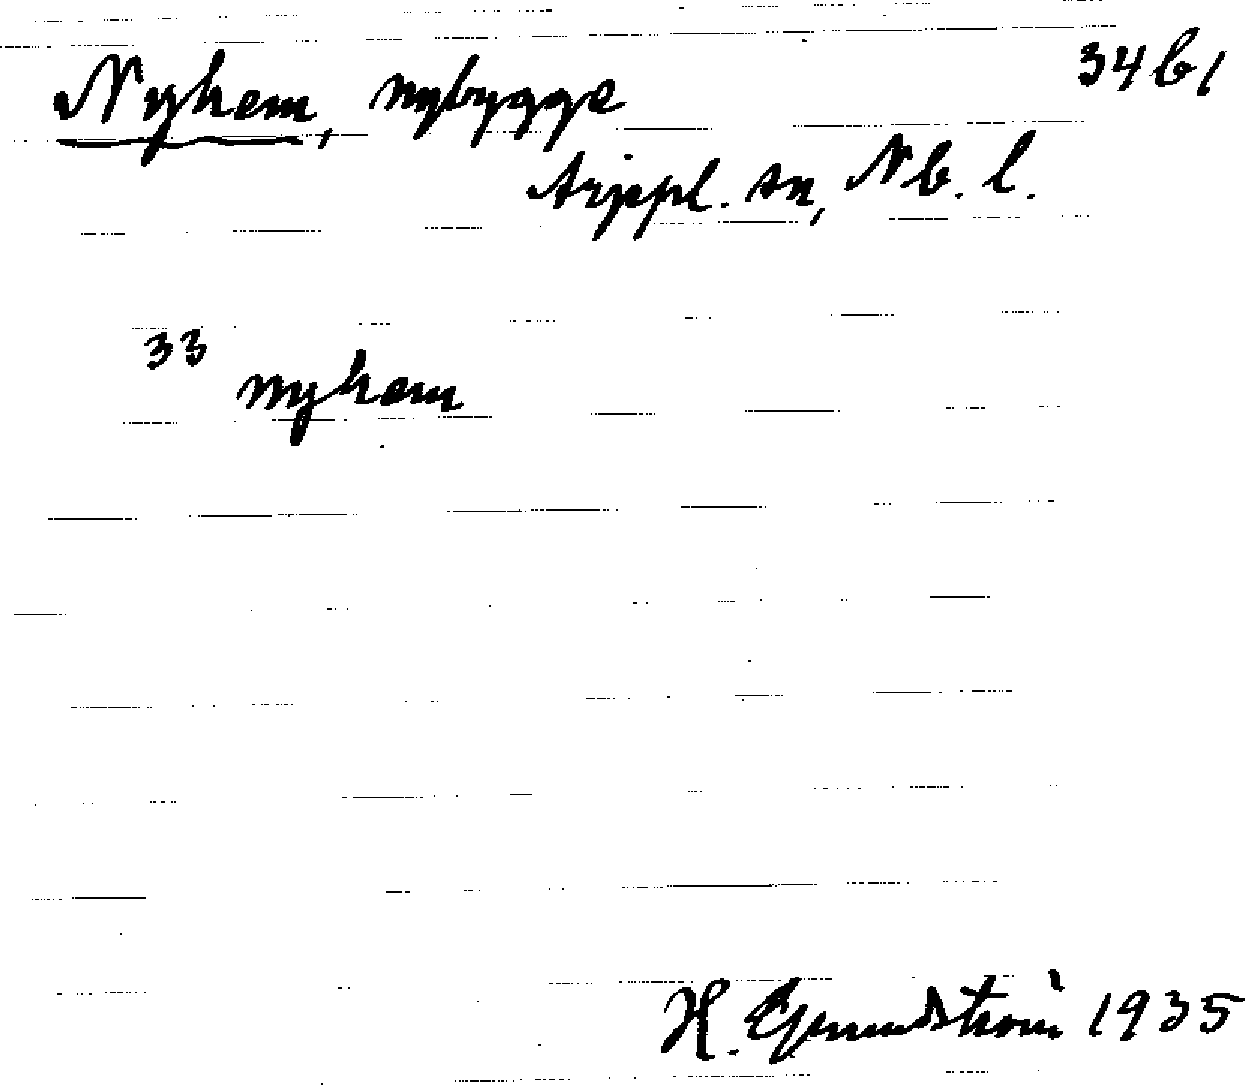 Nyhem, nybygge 34 b 1
Arjepl. sn, Nb. l.
33
nyhem
H. Grundström 1935